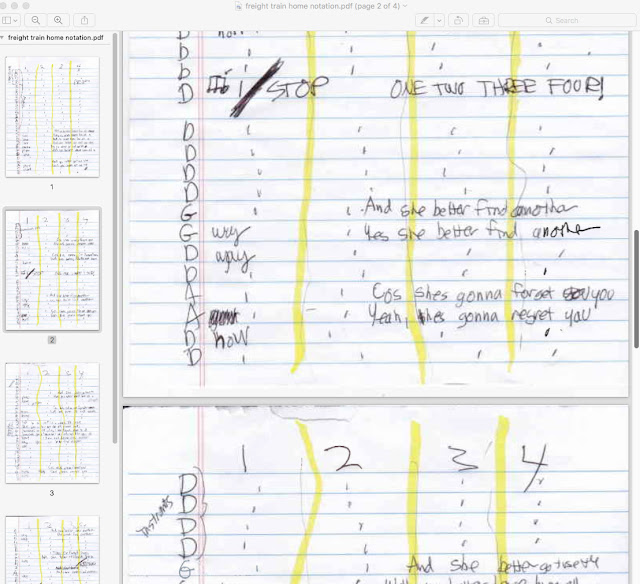 freight train home notation.pdf (page 2 of 4)
Search
freight train home notation.pdf
1
2
3
D
b
b
D 1 STOP ONE TWO THREE FOUR!
D
D
D
D
G And she better find another
G wry Yes she better find another
D away
D
A Cos shes gonna forget you
A Yeah, shes gonna regret you
D now
D
1 2 3 4
D
D
D
D
G And she better